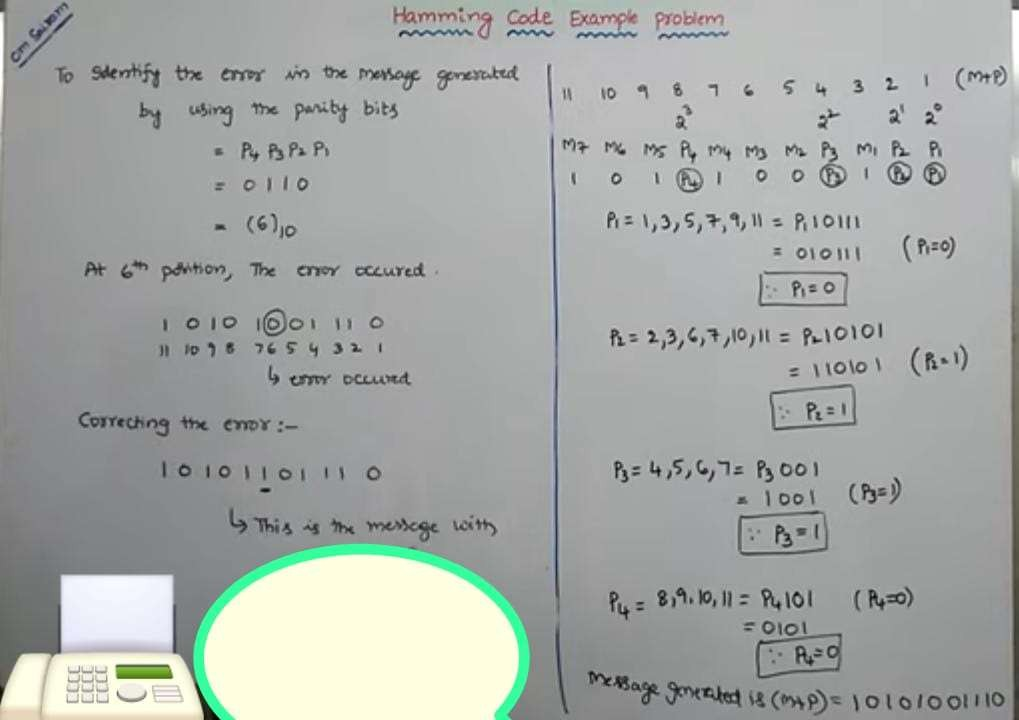 Om Sairam
Hamming Code Example problem
To Identify the error in the message generated
by using the parity bits
= P4 P3 P2 P1
= 0 1 1 0
= (6)10
At 6th position, The error occured.
1 0 1 0 1 0 0 1 1 1 0
11 10 9 8 7 6 5 4 3 2 1
↳ error occured
Correcting the error :-
1 0 1 0 1 1 0 1 1 1 0
↳ This is the message with
11 10 9 8 7 6 5 4 3 2 1 (M+P)
2³ 2² 2¹ 2⁰
M7 M6 M5 P4 M4 M3 M2 P3 M1 P2 P1
1 0 1 P4 1 0 0 P3 1 P2 P1
P1 = 1,3,5,7,9,11 = P1 10111
= 010111 (P1=0)
∴ P1 = 0
P2 = 2,3,6,7,10,11 = P2 10101
= 110101 (P2=1)
∴ P2 = 1
P3 = 4,5,6,7 = P3 001
= 1001 (P3=1)
∴ P3 = 1
P4 = 8,9,10,11 = P4 101 (P4=0)
= 0101
∴ P4=0
message generated is (M+P) = 10101001110